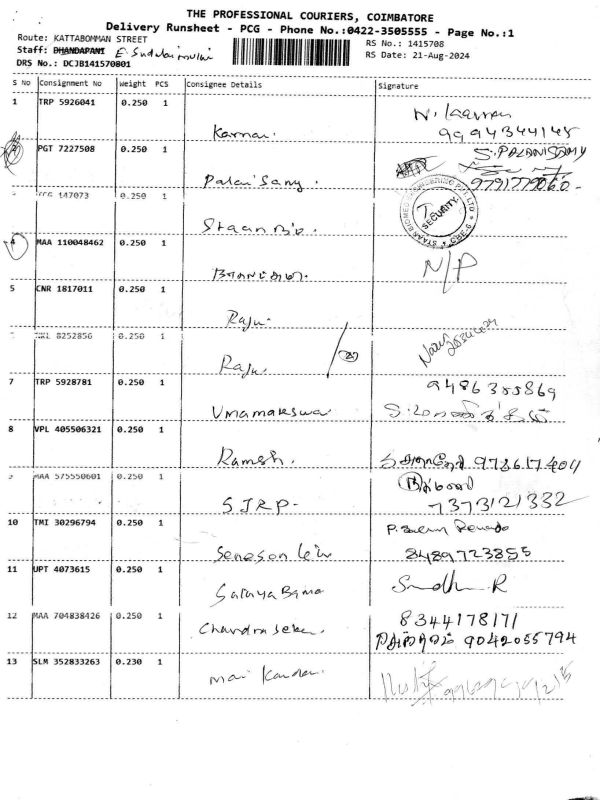 THE PROFESSIONAL COURIERS, COIMBATORE
Delivery Runsheet - PCG - Phone No.:0422-3505555 - Page No.:1
Route: KATTABOMMAN STREET
RS No.: 1415708
Staff: DHANDAPANI
RS Date: 21-Aug-2024
DRS No.: DCJB141570801
S No Consignment No Weight PCS Consignee Details Signature
1 TRP 5926041 0.250 1 Kannan.
9994344145
PGT 7227508 0.250 1 Palani Samy. S. PALANISAMY
9791779060-
147073 0.250 1 Staan Bio.
SECURITY
4 MAA 110048462 0.250 1 N/P
5 CNR 1817011 0.250 1 Raju.
8252856 0.250 1 Raju.
7 TRP 5928781 0.250 1 Umamakeswa 9486355869
8 VPL 405506321 0.250 1 Ramesh.
9 MAA 575550601 0.250 1 SJRP- 7373121332
10 TMI 30296794 0.250 1 8489723855
11 UPT 4073615 0.250 1 Satayabama Sindhu.R
12 MAA 704838426 0.250 1 Chandra Seka. 8344178171
9042055794
13 SLM 352833263 0.230 1 Mani Kandan.